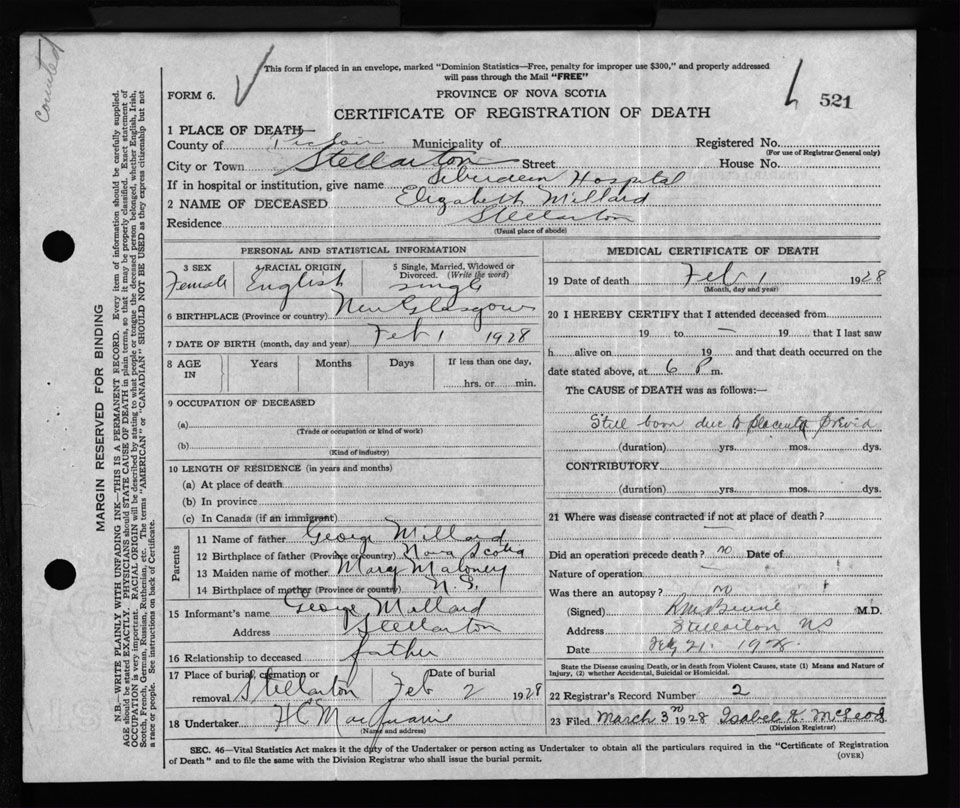 counted
This form if placed in an envelope, marked "Dominion Statistics—Free, penalty for improper use $300," and properly addressed
will pass through the Mail "FREE"
FORM 6.
PROVINCE OF NOVA SCOTIA
521
CERTIFICATE OF REGISTRATION OF DEATH
1 PLACE OF DEATH—
County of Pictou Municipality of Registered No.
(For use of Registrar General only)
City or Town Stellarton Street House No.
If in hospital or institution, give name Aberdeen Hospital
2 NAME OF DECEASED Elizabeth Millard
Residence Stellarton
(Usual place of abode)
PERSONAL AND STATISTICAL INFORMATION
3 SEX 4 RACIAL ORIGIN 5 Single, Married, Widowed or Divorced. (Write the word)
Female English single
6 BIRTHPLACE (Province or country) New Glasgow
7 DATE OF BIRTH (month, day and year) Feb 1 1928
8 AGE IN Years Months Days If less than one day,
hrs. or min.
9 OCCUPATION OF DECEASED
(a)
(Trade or occupation or kind of work)
(b)
(Kind of industry)
10 LENGTH OF RESIDENCE (in years and months)
(a) At place of death
(b) In province
(c) In Canada (if an immigrant)
Parents
11 Name of father George Millard
12 Birthplace of father (Province or country) Nova Scotia
13 Maiden name of mother Mary Maloney
14 Birthplace of mother (Province or country) N.S.
15 Informant's name George Millard
Address Stellarton
16 Relationship to deceased father
17 Place of burial, cremation or Date of burial
removal Stellarton Feb 2 1928
18 Undertaker H C MacQuarrie
(Name and address)
MEDICAL CERTIFICATE OF DEATH
19 Date of death Feb 1 1928
(Month, day and year)
20 I HEREBY CERTIFY that I attended deceased from
19 to — 19 that I last saw
h alive on 19 and that death occurred on the
date stated above, at 6 P m.
The CAUSE of DEATH was as follows:—
Still born due to placenta previa
(duration) yrs. mos. dys.
CONTRIBUTORY
(duration) yrs. mos. dys.
21 Where was disease contracted if not at place of death?
Did an operation precede death? no Date of
Nature of operation
Was there an autopsy? no
(Signed) M.D.
Address Stellarton NS
Date Feby 21 1928
State the Disease causing Death, or in death from Violent Causes, state (1) Means and Nature of
Injury, (2) whether Accidental, Suicidal or Homicidal.
22 Registrar's Record Number 2
23 Filed March 3rd 1928 Isabel K. McLeod
(Division Registrar)
SEC. 46—Vital Statistics Act makes it the duty of the Undertaker or person acting as Undertaker to obtain all the particulars required in the "Certificate of Registration
of Death" and to file the same with the Division Registrar who shall issue the burial permit.
(OVER)
MARGIN RESERVED FOR BINDING
N.B.—WRITE PLAINLY WITH UNFADING INK—THIS IS A PERMANENT RECORD. Every item of information should be carefully supplied.
AGE should be stated EXACTLY. PHYSICIANS should STATE CAUSE OF DEATH in plain terms, so that it may be properly classified. Exact statement of
OCCUPATION is very important. RACIAL ORIGIN will be described by stating to what people or tongue the deceased person belonged, whether English, Irish,
Scotch, French, German, Russian, Ruthenian, etc. The terms "AMERICAN" or "CANADIAN" SHOULD NOT BE USED as they express citizenship but not
a race or people. See instructions on back of Certificate.